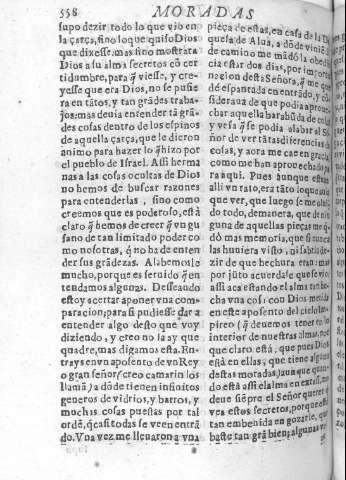 558 MORADAS
supo dezir todo lo que vio en
la çarça, sino lo que quiso Dios
que dixesse, mas sino mostrara
Dios a su alma secretos cõ cer
tidumbre, para q̃ viesse, y cre-
yesse que era Dios, no se pusie
ra en tãtos, y tan grãdes traba-
jos: mas deuia entender tã grã-
des cosas dentro de los espinos
de aquella çarça, que le dieron
animo para hazer lo q̃ hizo por
el pueblo de Israel. Assi herma
nas a las cosas ocultas de Dios
no hemos de buscar razones
para entenderlas, sino como
creemos que es poderoso, está
claro q̃ hemos de creer q̃ vn gu
sano de tan limitado poder co
mo nosotras, q̃ no ha de enten
der sus grãdezas. Alabemosle
mucho, porque es seruido q̃ en
tendamos algunas. Desseando
estoy acertar a poner vna com-
paracion, para si pudiesse dar a
entender algo desto que voy
diziendo, y creo no la ay que
quadre, mas digamos esta. En-
trays en vn aposento de vn Rey
o gran señor (creo camarin los
llamã) a dõde tienen infinitos
generos de vidrios, y barros, y
muchas cosas puestas por tal
ordẽ, q̃ casi todas se veen entrã
do. Vna vez me lleuaron a vna
pieça de estas, en casa de la Du
quesa de Alua, a dõde viniẽ
de camino me mãdó la obedi
cia estar dos dias, por import
nacion desta Señora, q̃ me que
dé espantada en entrãdo, y cõ
sideraua de que podia aproue
char aquella barabũda de cosas
y vesa q̃ se podia alabar al Se
ñor de ver tãtas diferencias de
cosas, y aora me cae en gracia
como me han aprouechado pa
ra aqui. Pues aunque estuue
alli vn rato, era tãto lo que auia
que ver, que luego se me oluidó
todo, de manera, que de nin
guna de aquellas pieças me q̃
dó mas memoria, que si nunca
las huuiera visto, ni sabria de
zir de que hechura eran: mas
por jũto acuerdase que se vio
assi acà estando el alma tan he-
cha vna cosa con Dios metida
en este aposento del cielo Im-
pireo (q̃ deuemos tener en lo
interior de nuestras almas, por
que claro está, que pues Dios
està en ellas, que tiene alguna
destas moradas) aunque quan
do está assi el alma en extasi, no
deue siẽpre el Señor querer q̃
vea estos secretos, porque està
tan embebida en gozarle, que
baste tan grã bien; algunas vezes